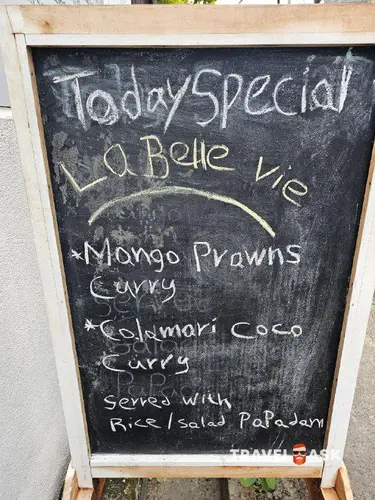 Today Special
La Belle vie
*Mango Prawns
Curry
*Calamari Coco
Curry
Served with
Rice/Salad PaPadam
TRAVEL ASK